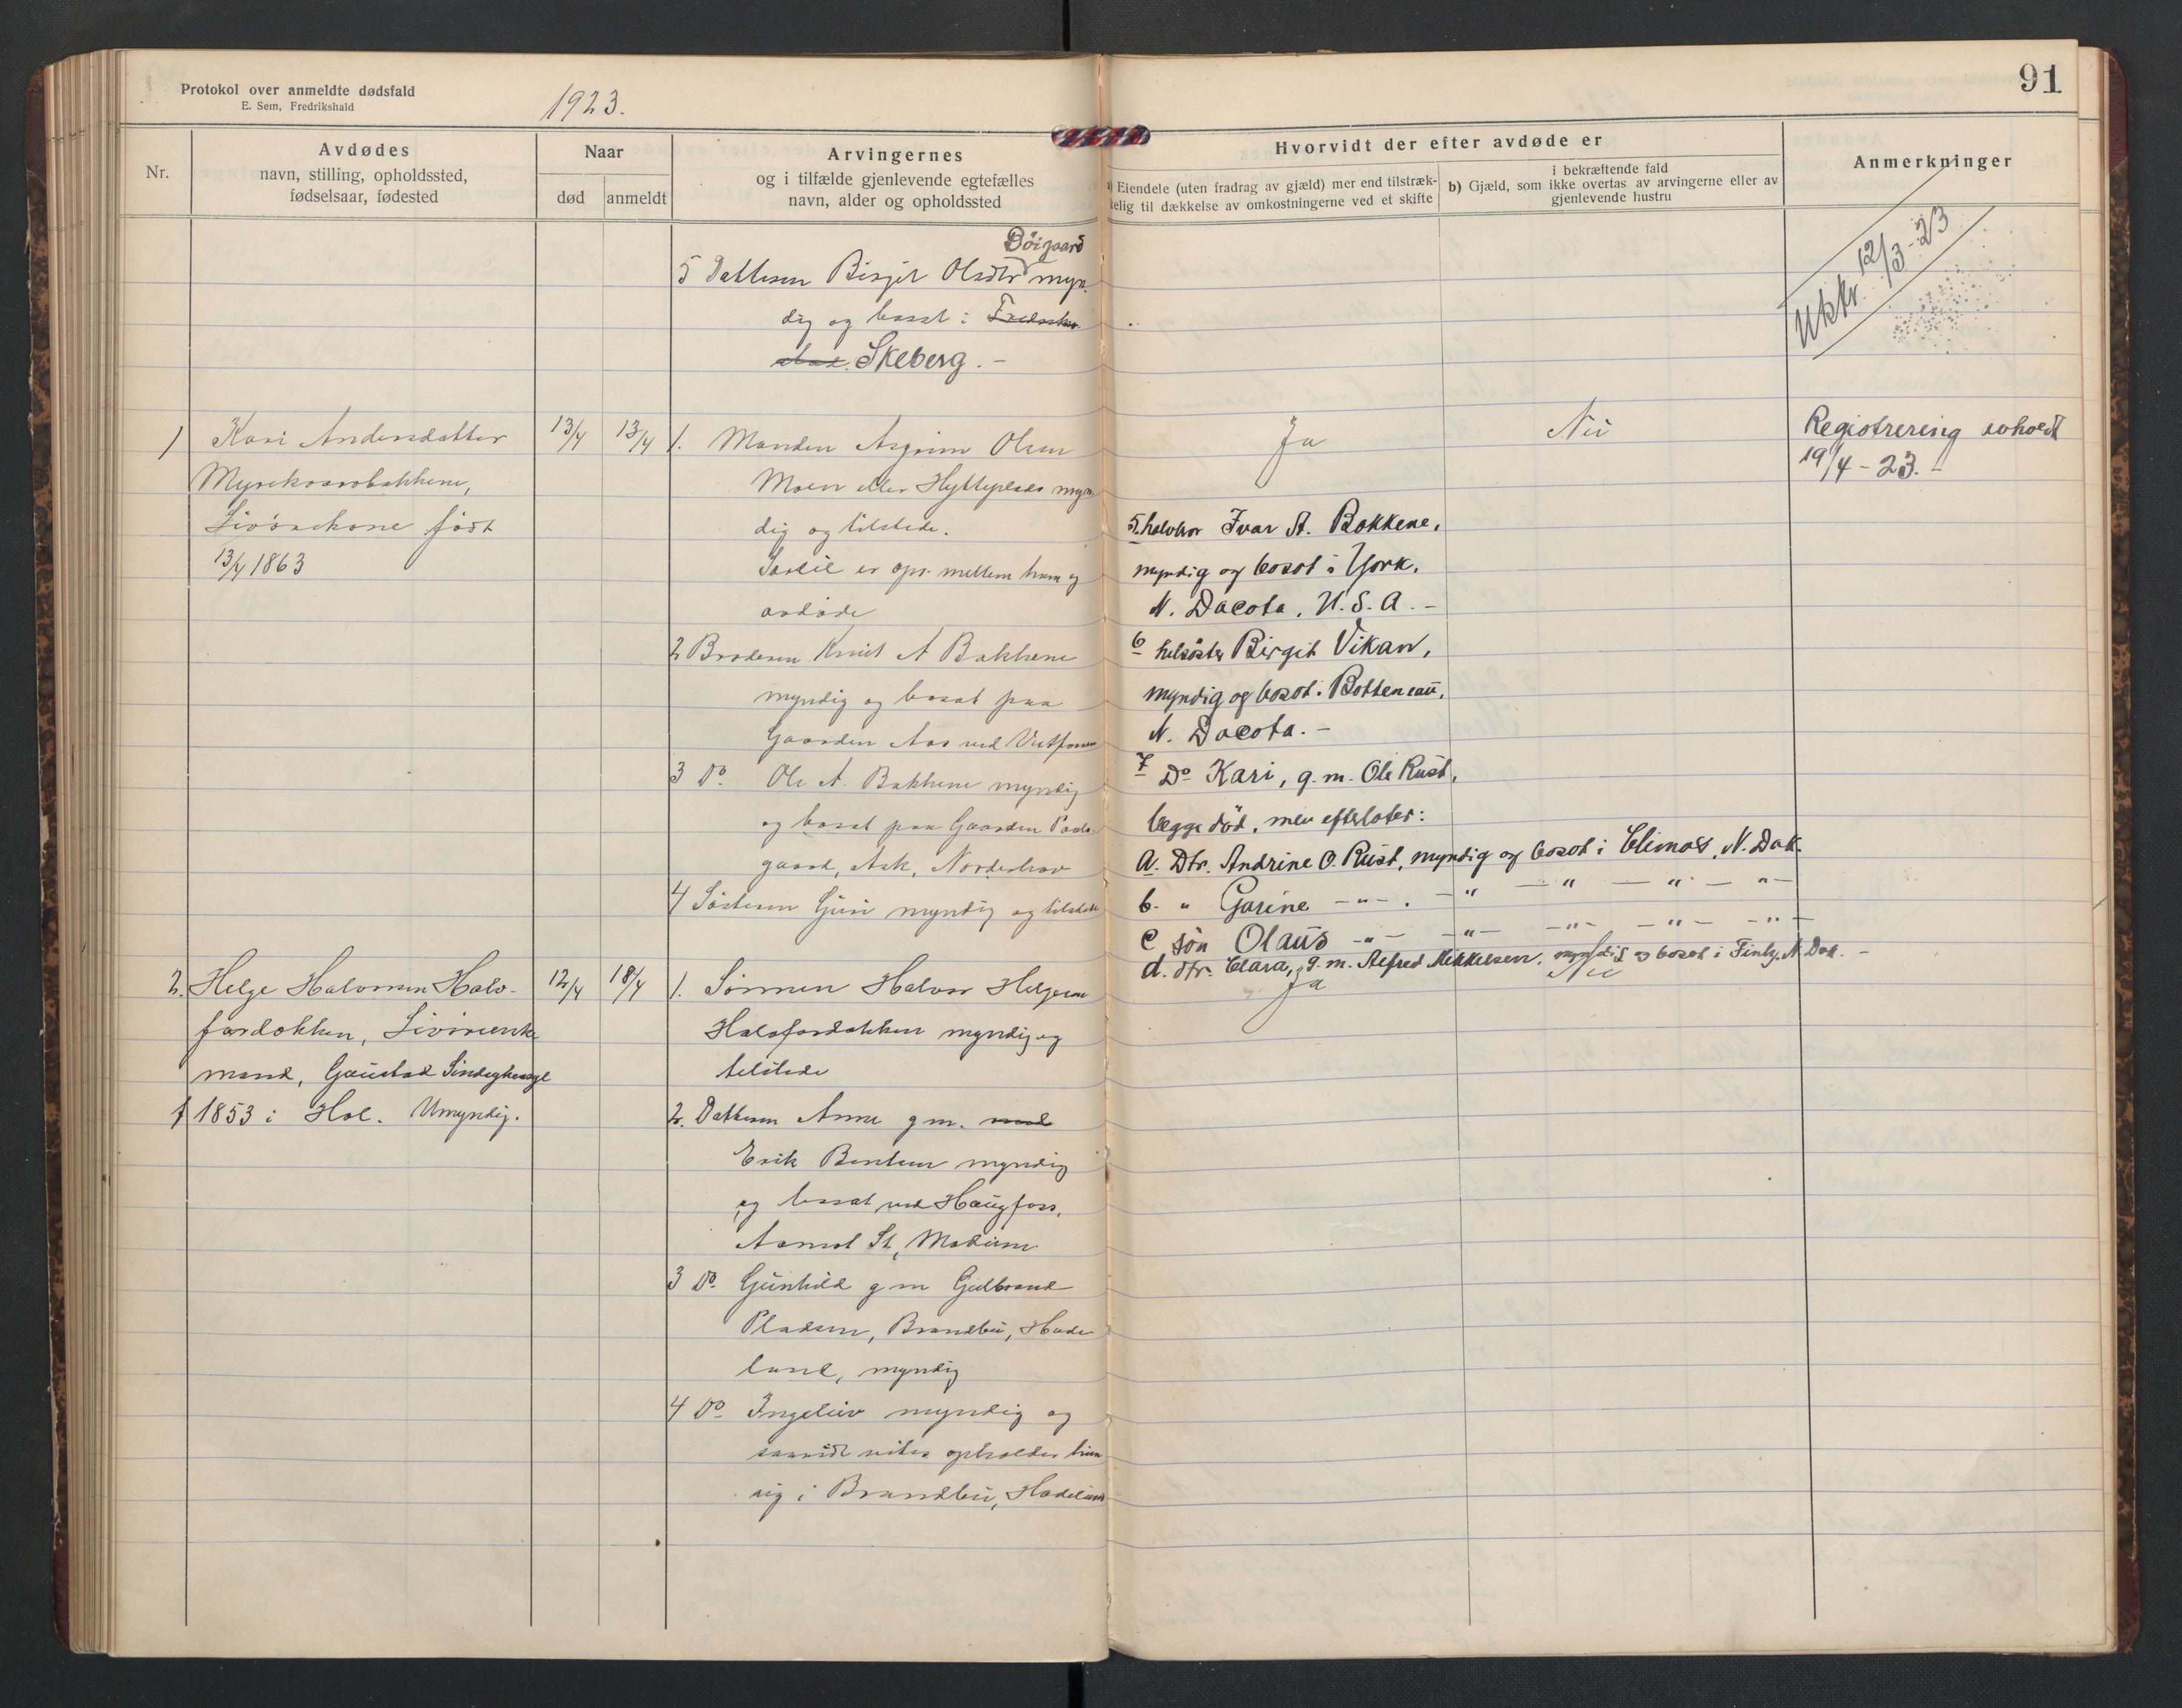 Protokol over anmeldte dødsfald
E. Sem, Fredrikshald
1923.
91
Nr.
Avdødes
navn, stilling, opholdssted,
fødselsaar, fødested
Naar
død
anmeldt
Arvingernes
og i tilfælde gjenlevende egtefælles
navn, alder og opholdssted
Hvorvidt der efter avdøde er
a) Eiendele (uten fradrag av gjæld) mer end tilstræk-
kelig til dækkelse av omkostningerne ved et skifte
i bekræftende fald
b) Gjæld, som ikke overtas av arvingerne eller av
gjenlevende hustru
Anmerkninger
Döigaard
5 Datteren Birgit Olsdtr myn-
dig og bosat i Fredrikstad
Skeberg. -
Utskr. 12/3-23
1 Kari Andersdatter
13/4
13/4
født
13/4 1863
1. Manden Asgrim Olsen
Moen eller Hytteplads myn
dig og tilstede.
Særeie er opr. mellem ham og
avdøde
2 Broderen Knut A Bakkene
myndig og bosat paa
Gaarden Aas ved
3 Do. Ole A. Bakkene myndig
og bosat paa Gaarden
gaard, Ask, Norderhov
4 Søsteren Guri myndig og tilstede
Ja
Nei
Registrering avholdt
19/4-23. -
5. halvbror Ivar A. Bakkene,
myndig og bosat i York.
N. Dacota, U.S.A. -
6 helsöster Birgit Vikan,
myndig og bosat i Bottenau,
N. Dacota. -
7 Do Kari, g.m. Ole Rust,
begge död, men efterlater:
a. Dtr. Andrine O. Rust, myndig og bosat i Climas, N. Dak.
b. " Garine - " - . - " - " - " - " -
c sön Olaus - " - - " - - " - - " - - " -
d. dtr. Clara, g.m. Alfred Mikkelsen, myndig og bosat i Finly, N. Dak. -
2. Helge Halvorsen Halv-
fardokken,
mand, Gaustad Sindssykeasyl
f 1853 i Hol. Umyndig.
12/4
18/4
1. Sønnen Halvor Helgesen
Halvfardokken myndig og
tilstede
2. Datteren Anne g m. med
Erik Bentsen myndig
og bosat ved Haugfoss,
Aamot St, Modum
3 Do. Gunhild g m Gulbrand
Pladsen, Brandbu, Hade
land, myndig
4 Do Ingeliv myndig og
saavidt vites opholder hun
sig i Brandbu, Hadeland
Ja
Nei